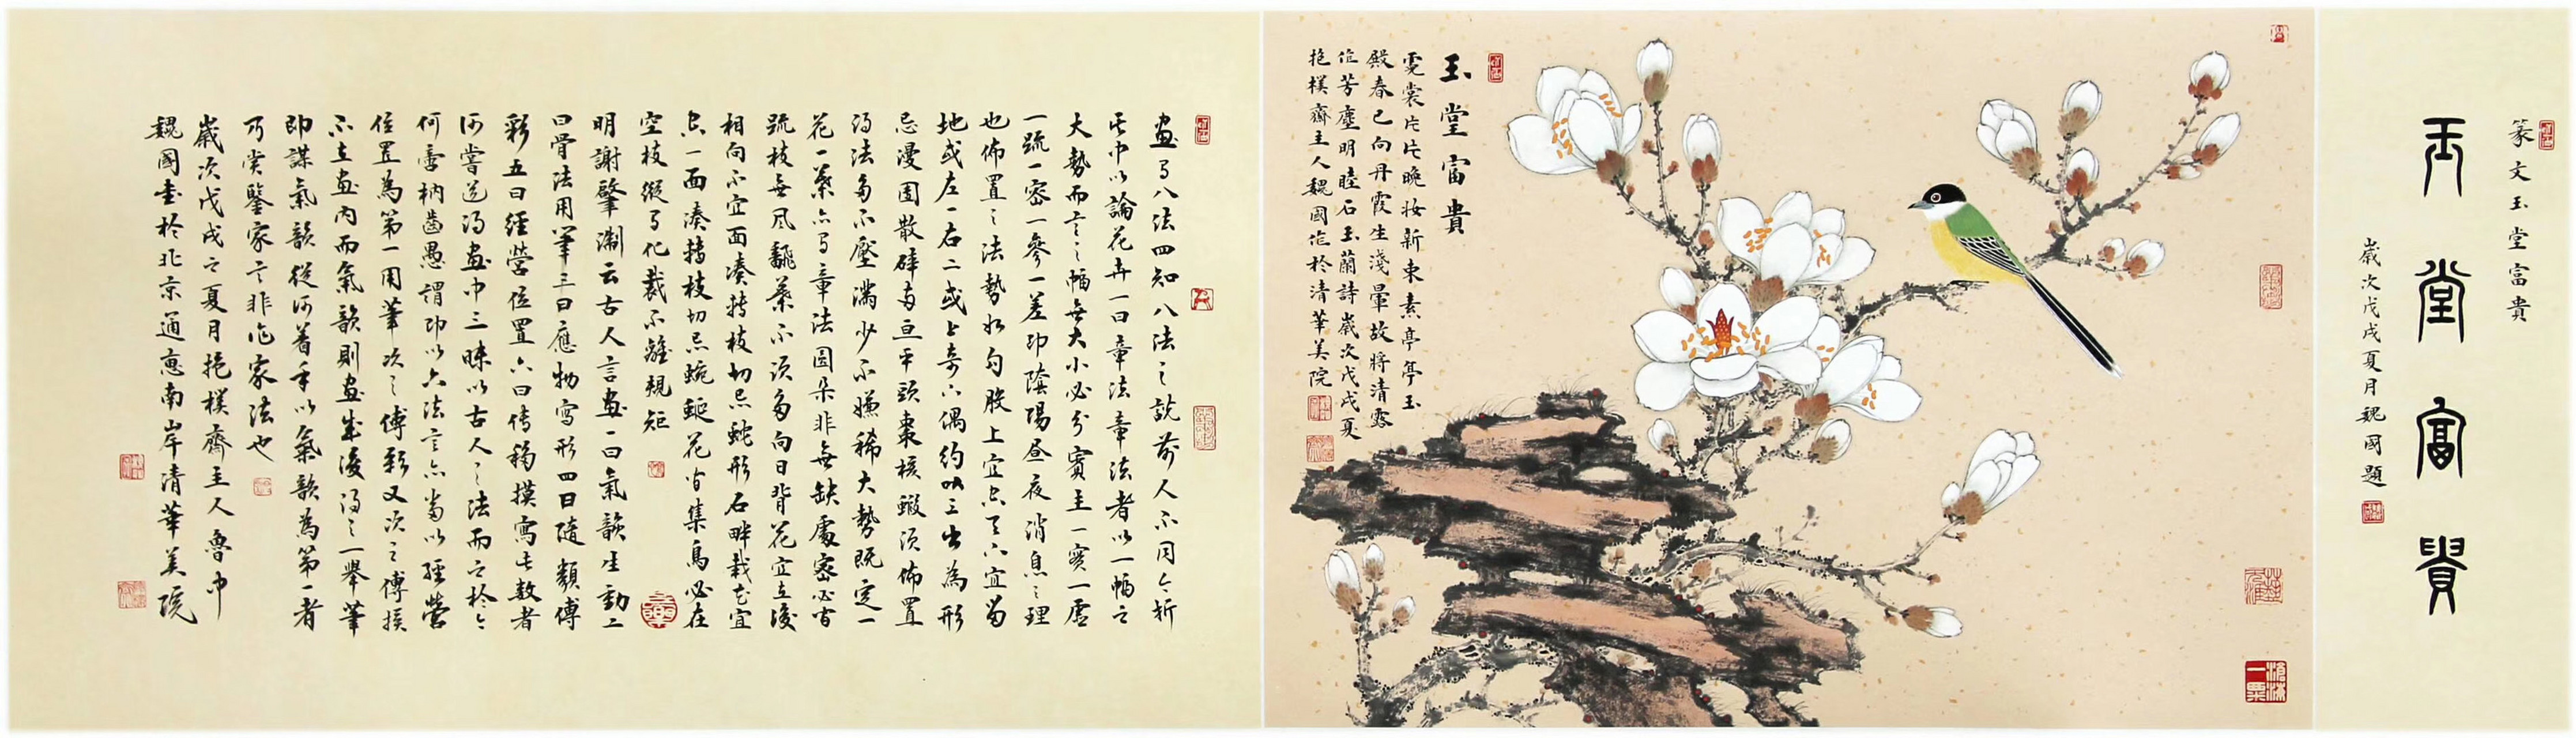 篆文玉堂富貴
玉堂富貴
歲次戊戌夏月魏國題
玉堂富貴
霓裳片片晚妝新束素亭亭玉
殿春已向丹霞生淺暈故將清露
作芳塵明睦石玉蘭詩歲次戊戌夏
抱樸齋主人魏國作於清華美院
畫有八法四知八法之說前人不同今折
其中以論花卉一曰章法章法者以一幅之
大勢而言之幅無大小必分賓主一實一虛
一疏一密一參一差即陰陽昼夜消息之理
也佈置之法勢如勾股上宜空天下宜留
地或左一右二或上奇下偶約以三出為形
忌漫團散碎兩亘平頭棗核蝦須佈置
得法多不壓滿少不嫌稀大勢既定一
花一葉亦有章法圓朵非無缺處密必有
疏枝無風翻葉不須多向日背花宜立後
相向不宜面湊轉枝切忌蛇形石畔栽花宜
空一面湊轉枝切忌蜿蜒花間集鳥必在
空枝縱有化裁不離規矩
明謝肇淛云古人言畫一曰氣韻生動二
曰骨法用筆三曰應物寫形四曰隨類傅
彩五曰經營位置六曰傳移摸寫此數者
何嘗道得畫中三昧以古人之法而之於今
何啻枘鑿愚謂即以六法言亦當以經營
位置為第一用筆次之傅彩又次之傅摸
不立畫內而氣韻則畫成後得之一舉筆
即謀氣韻從何着手以氣韻為第一者
乃賞鑒家言非作家法也
歲次戊戌之夏月抱樸齋主人魯中
魏國書於北京通惠南岸清華美院